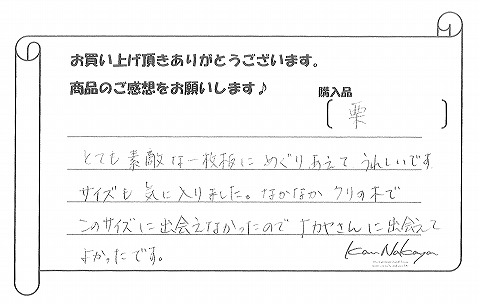 お買い上げ頂きありがとうございます。
商品のご感想をお願いします♪
購入品
栗
とても素敵な一枚板にめぐりあえてうれしいです
サイズも気に入りました。なかなかクリの木で
このサイズに出会えなかったのでナカヤさんに出会えて
よかったです。